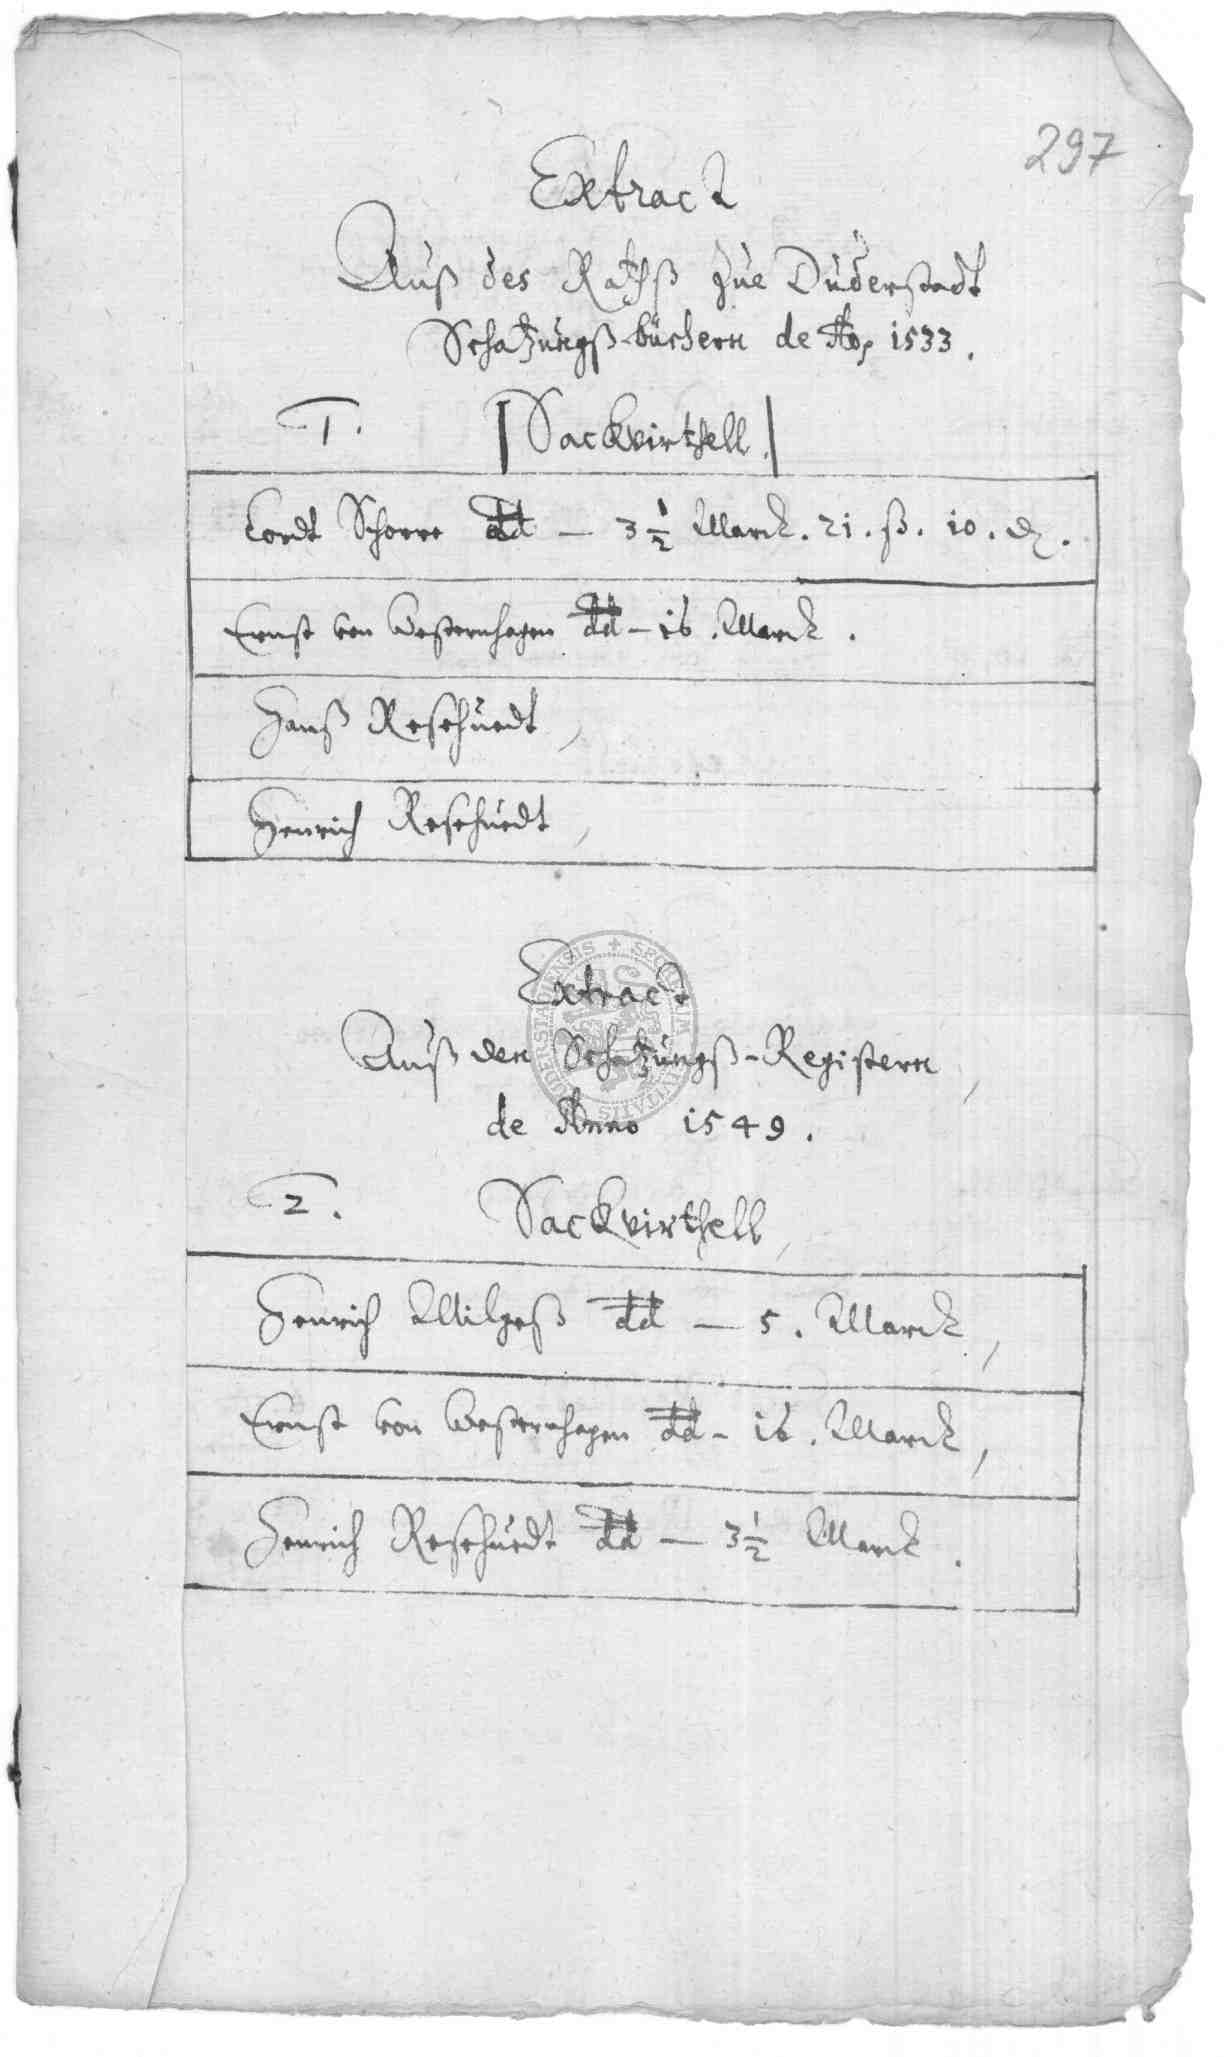 297
Extract
Auß des Rathß zue Duderstadt
Schatzungß-büchern de Ao 1533.
1. Sackvirthell.
Cordt Schorre dd — 3 1/2 Marck. 21. ß. 10. ₰.
Ernst von Westernhagen dd – 16. Marck.
Hanß Resehuedt,
Henrich Resehuedt,
Extract
Auß den Schatzungß-Registern
de Anno 1549.
2. Sackvirthell,
Henrich Milgeß dd — 5. Marck,
Ernst von Westernhagen dd – 16. Marck,
Henrich Resehuedt dd — 3 1/2 Marck.